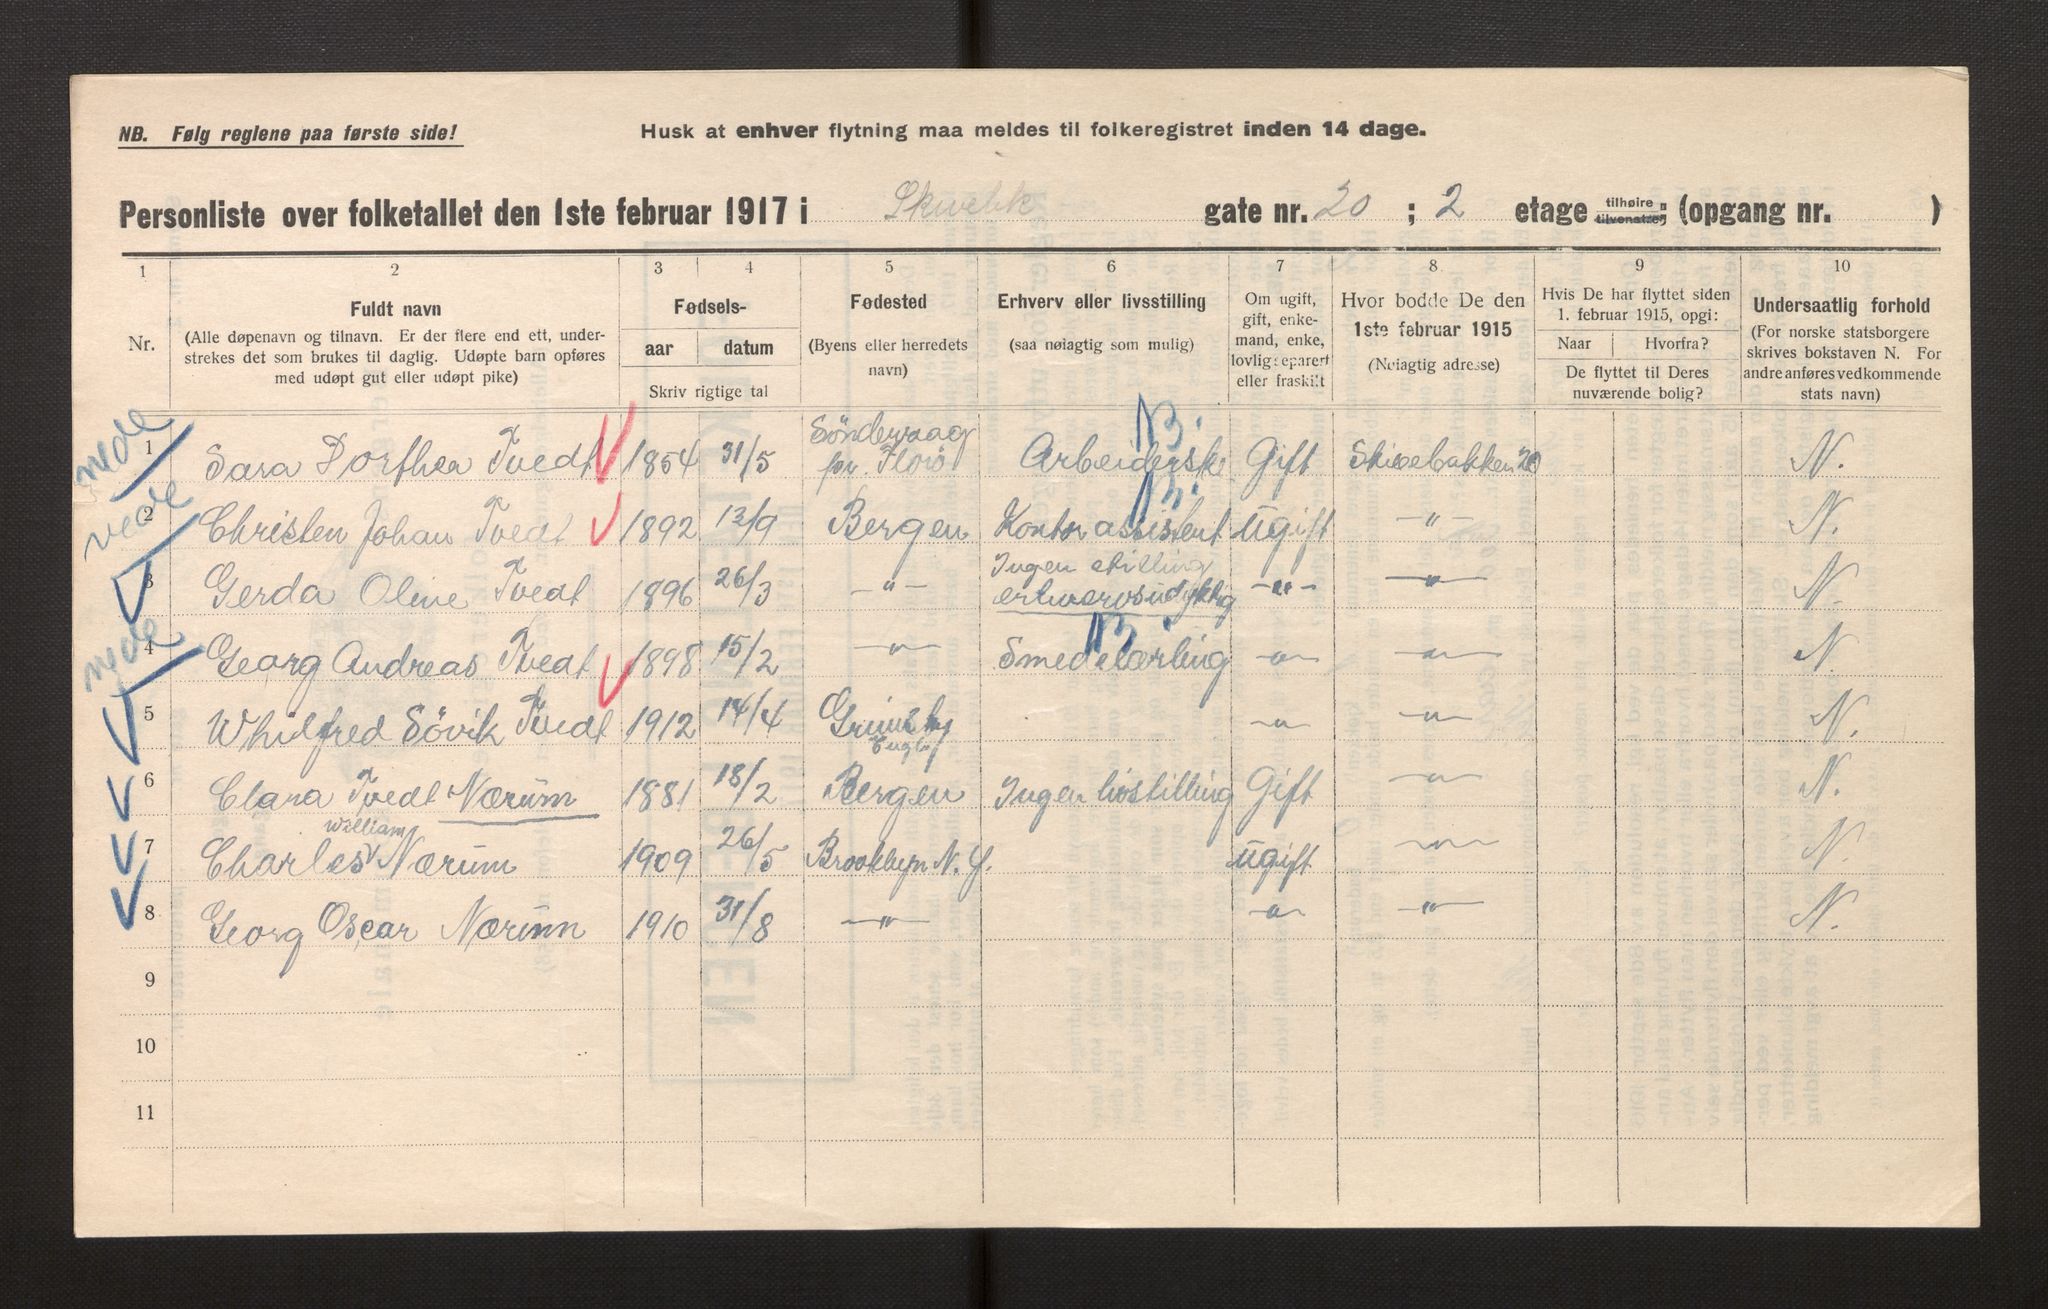 NB. Følg reglene paa første side!
Husk at enhver flytning maa meldes til folkeregistret inden 14 dage.
Personliste over folketallet den 1ste februar 1917 i Skivebk gate nr. 20 ; 2 etage tilhøire; tilvenstre; (opgang nr. )
1 2 3 4 5 6 7 8 9 10
Nr.
Fuldt navn
(Alle døpenavn og tilnavn. Er der flere end ett, under-
strekes det som brukes til daglig. Udøpte barn opføres
med udøpt gut eller udøpt pike)
Fødsels-
aar datum
Skriv rigtige tal
Fødested
(Byens eller herredets
navn)
Erhverv eller livsstilling
(saa nøiagtig som mulig)
Om ugift,
gift, enke-
mand, enke,
lovlig separert
eller fraskilt
Hvor bodde De den
1ste februar 1915
(Nøiagtig adresse)
Hvis De har flyttet siden
1. februar 1915, opgi:
Naar Hvorfra?
De flyttet til Deres
nuværende bolig?
Undersaatlig forhold
(For norske statsborgere
skrives bokstaven N. For
andre anføres vedkommende
stats navn)
nede 1 Sara Dorthea Tvedt 1854 31/5 Søndervaag pr. Florø Arbeiderske Gift Skivebakken 20 N.
nede 2 Christen Johan Tvedt 1892 12/9 Bergen Kontorassistent ugift -"- N.
3 Gerda Oline Tvedt 1896 26/3 -"- Ingen stilling erhvervsudyktig -"- -"- N.
nede 4 Georg Andreas Tvedt 1898 15/2 -"- Smedelærling -"- -"- N.
5 Whilfred Søvik Tvedt 1912 14/4 Grimsby Engl. -"- -"- N.
6 Clara Tvedt Nærum 1881 18/2 Bergen Ingen livstilling Gift -"- N.
7 Charles William Nærum 1909 26/5 Brooklyn N. Y. ugift -"- N.
8 Georg Oscar Nærum 1910 31/8 -"- -"- -"- N.
9
10
11